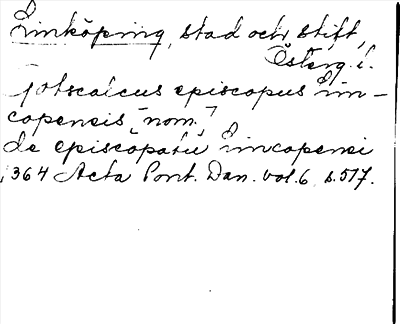 Linköping, stad och stift,
Österg. l.
Jotscalcus episcopus Lin-
copensis "nom."
de episcopatu Lincopensi
1364 Acta Pont. Dan. vol. 6, s. 517.